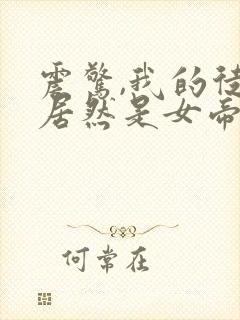 震惊,我的徒
居然是女帝
何常在